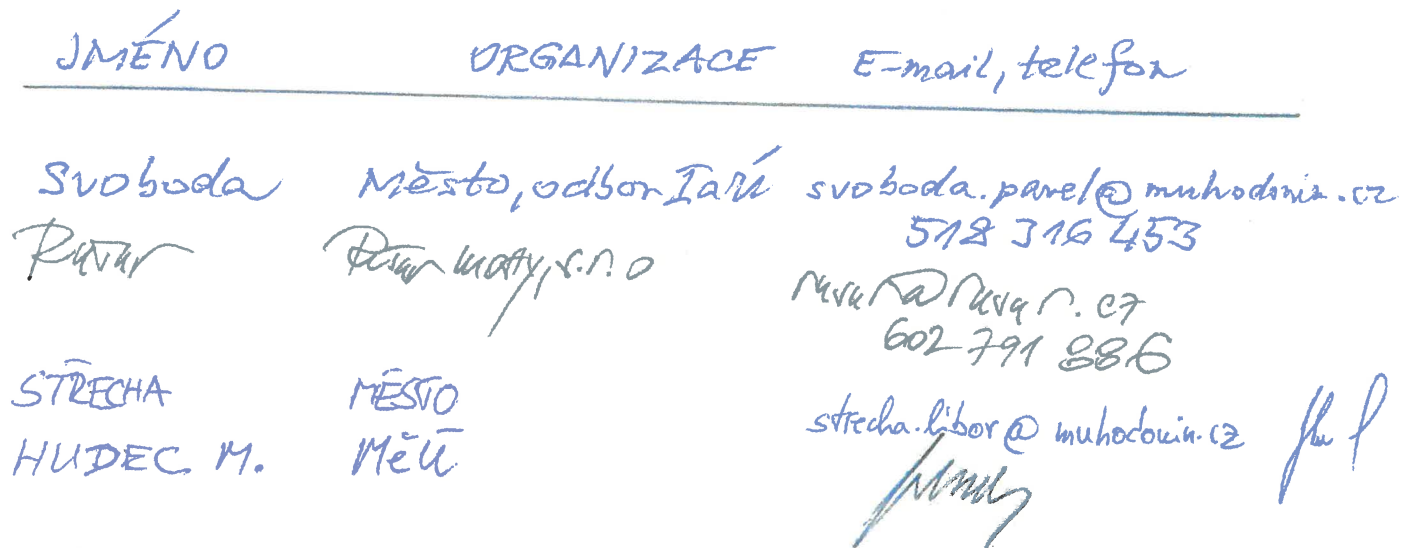 JMÉNO ORGANIZACE E-mail, telefon
Svoboda Město, odbor svoboda.pavel@muhodonin.cz
518 316 453
s.r.o
602 791 886
STŘECHA MĚSTO
strecha.libor@muhodonin.cz
HUDEC M. MěÚ